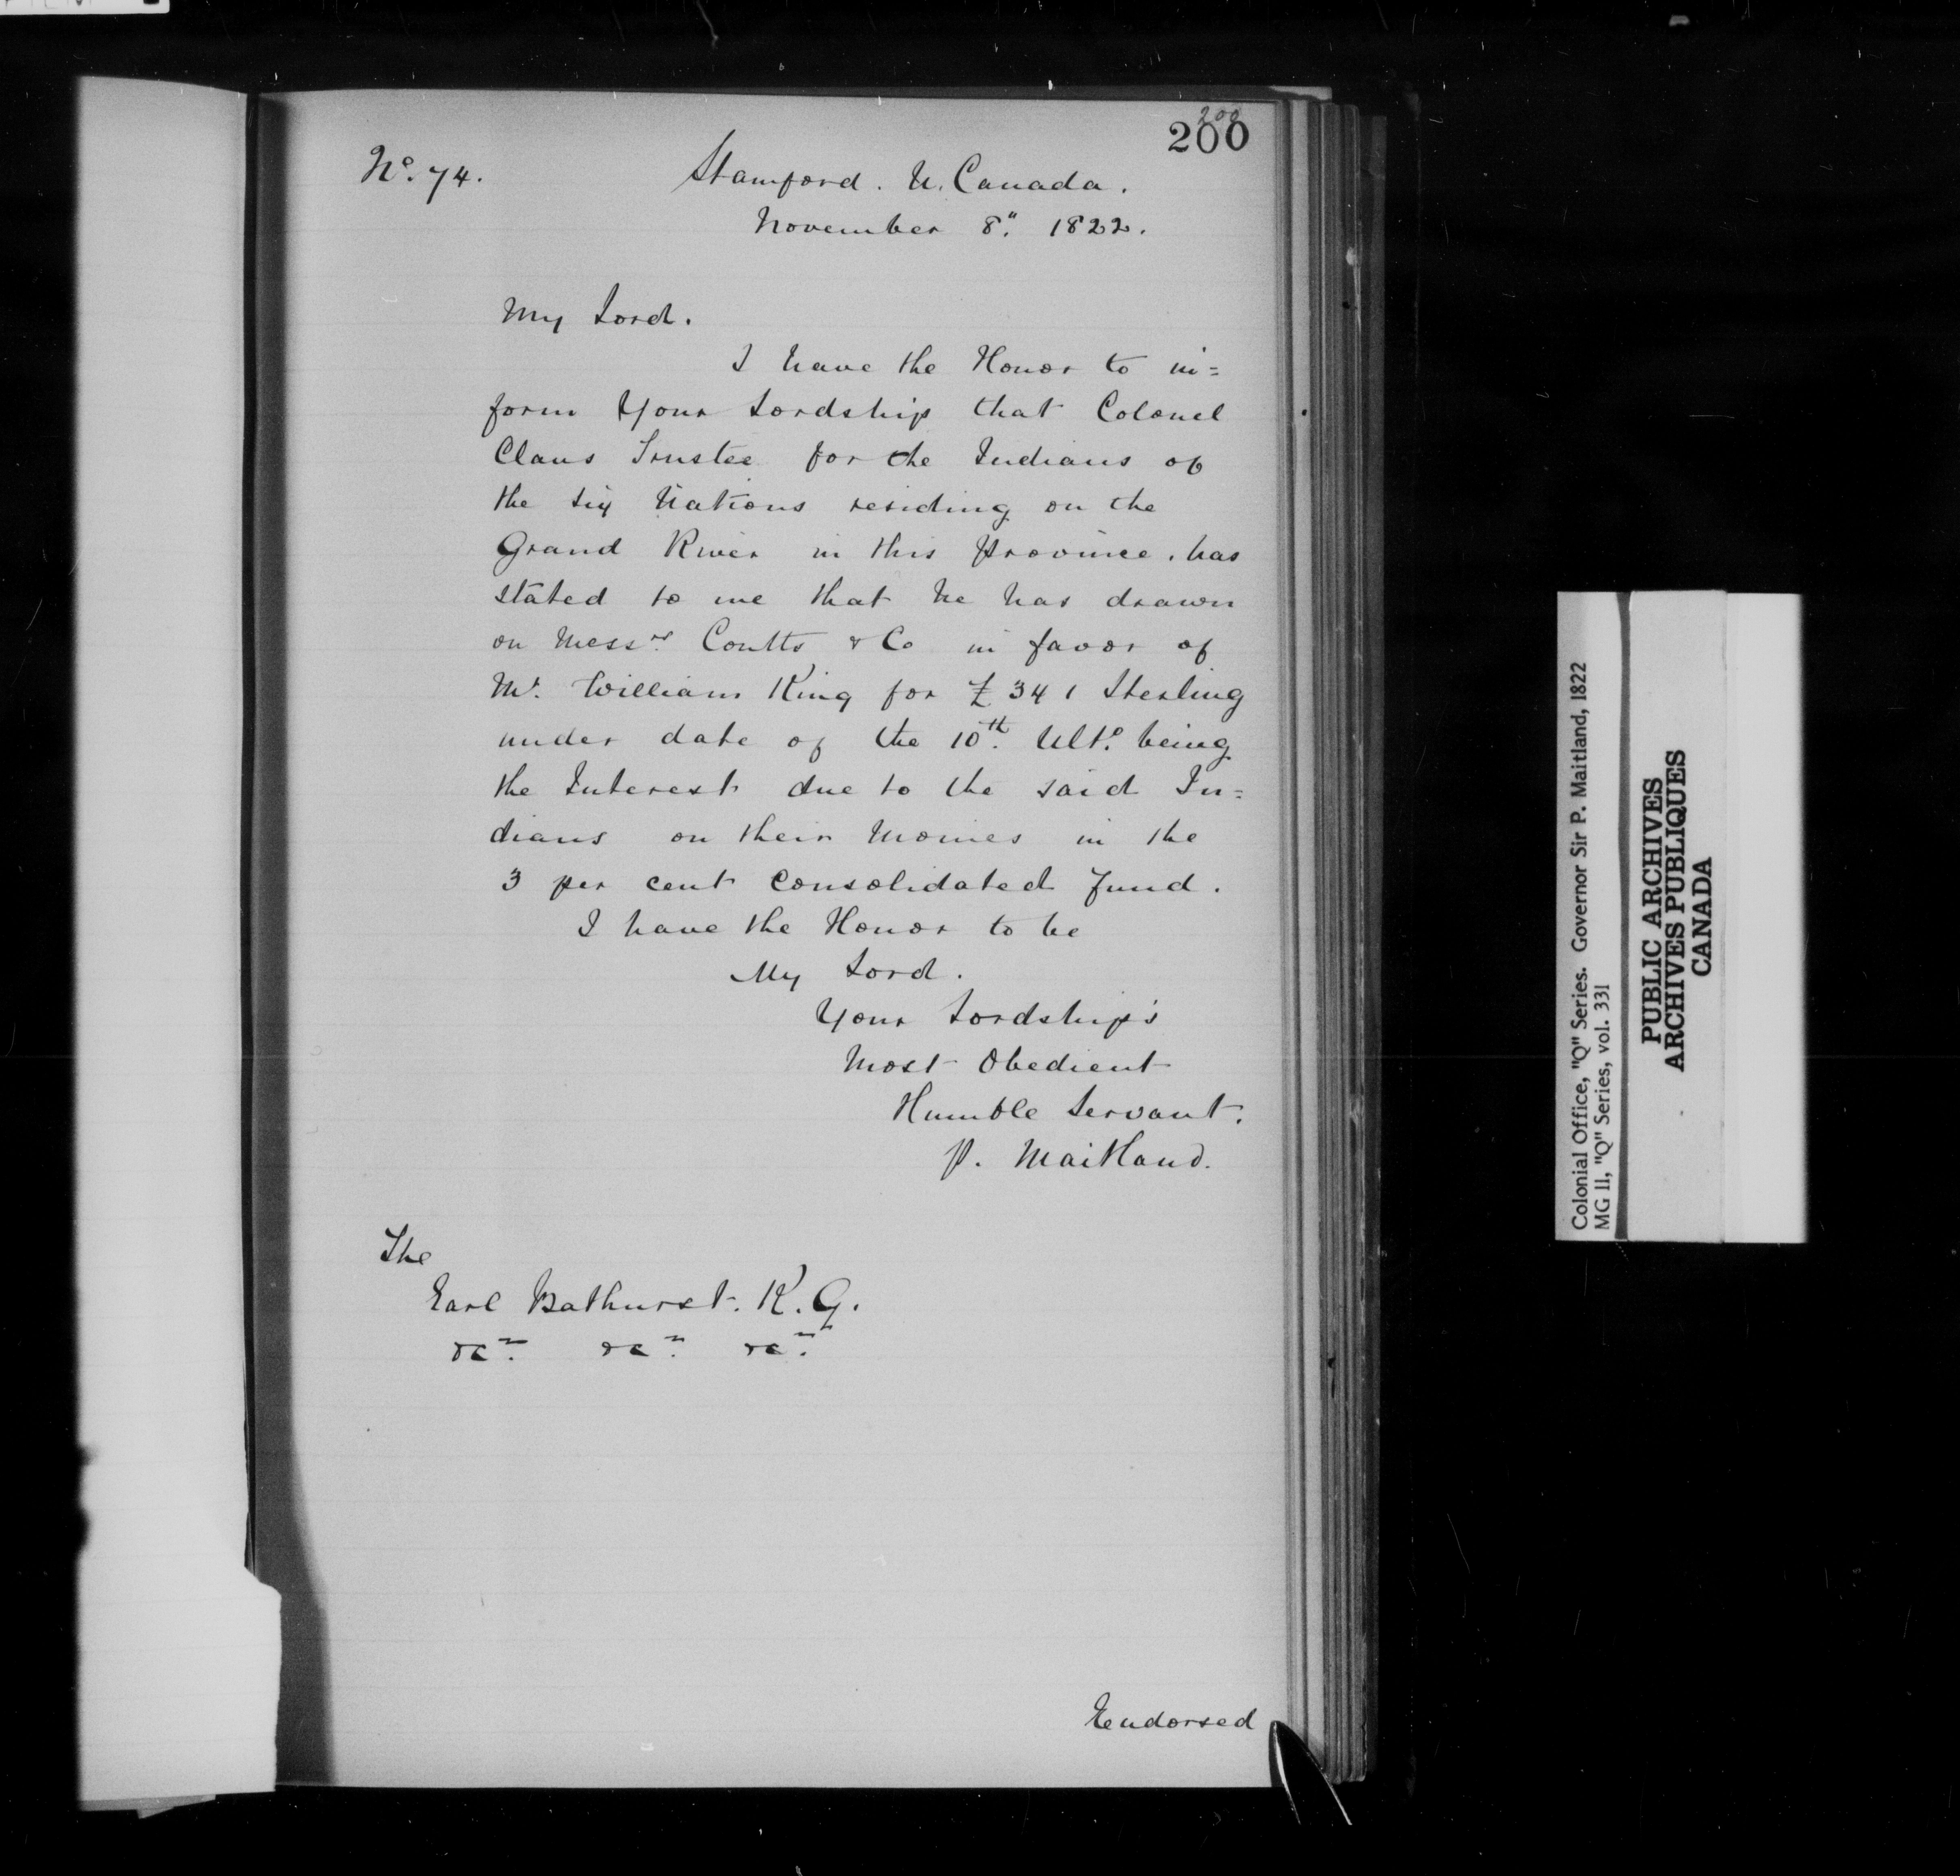 200
200
No. 74.
Stamford. U. Canada.
November 8." 1822.
My Lord.
I have the Honor to in=
form Your Lordship that Colonel
Claus Trustee for the Indians of
the Six Nations residing on the
Grand River in this Province, has
stated to me that he has drawn
on Messrs. Coutts & Co in favor of
Mr. William King for £341 Sterling
under date of the 10th. Ulto. being
the Interest due to the said In=
dians on their monies in the
3 per cent Consolidated Fund.
I have the Honor to be
My Lord.
Your Lordship's
Most Obedient
Humble Servant.
P. Maitland.
The
Earl Bathurst. K.G.
&c. &c. &c.
Endorsed
Colonial Office, "Q" Series. Governor Sir P. Maitland, 1822
MG 11, "Q" Series, vol. 331
PUBLIC ARCHIVES
ARCHIVES PUBLIQUES
CANADA